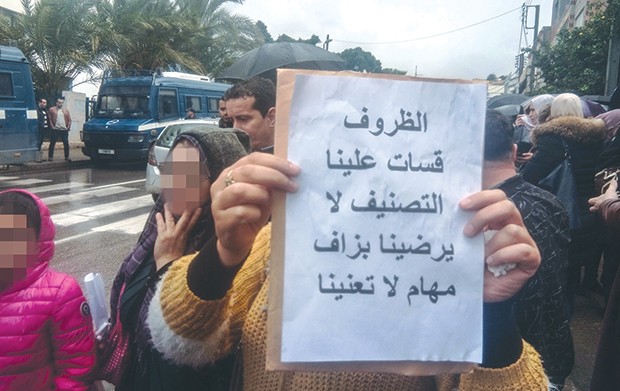 الظروف
قسات علينا
التصنيف لا
يرضينا بزاف
مهام لا تعنينا